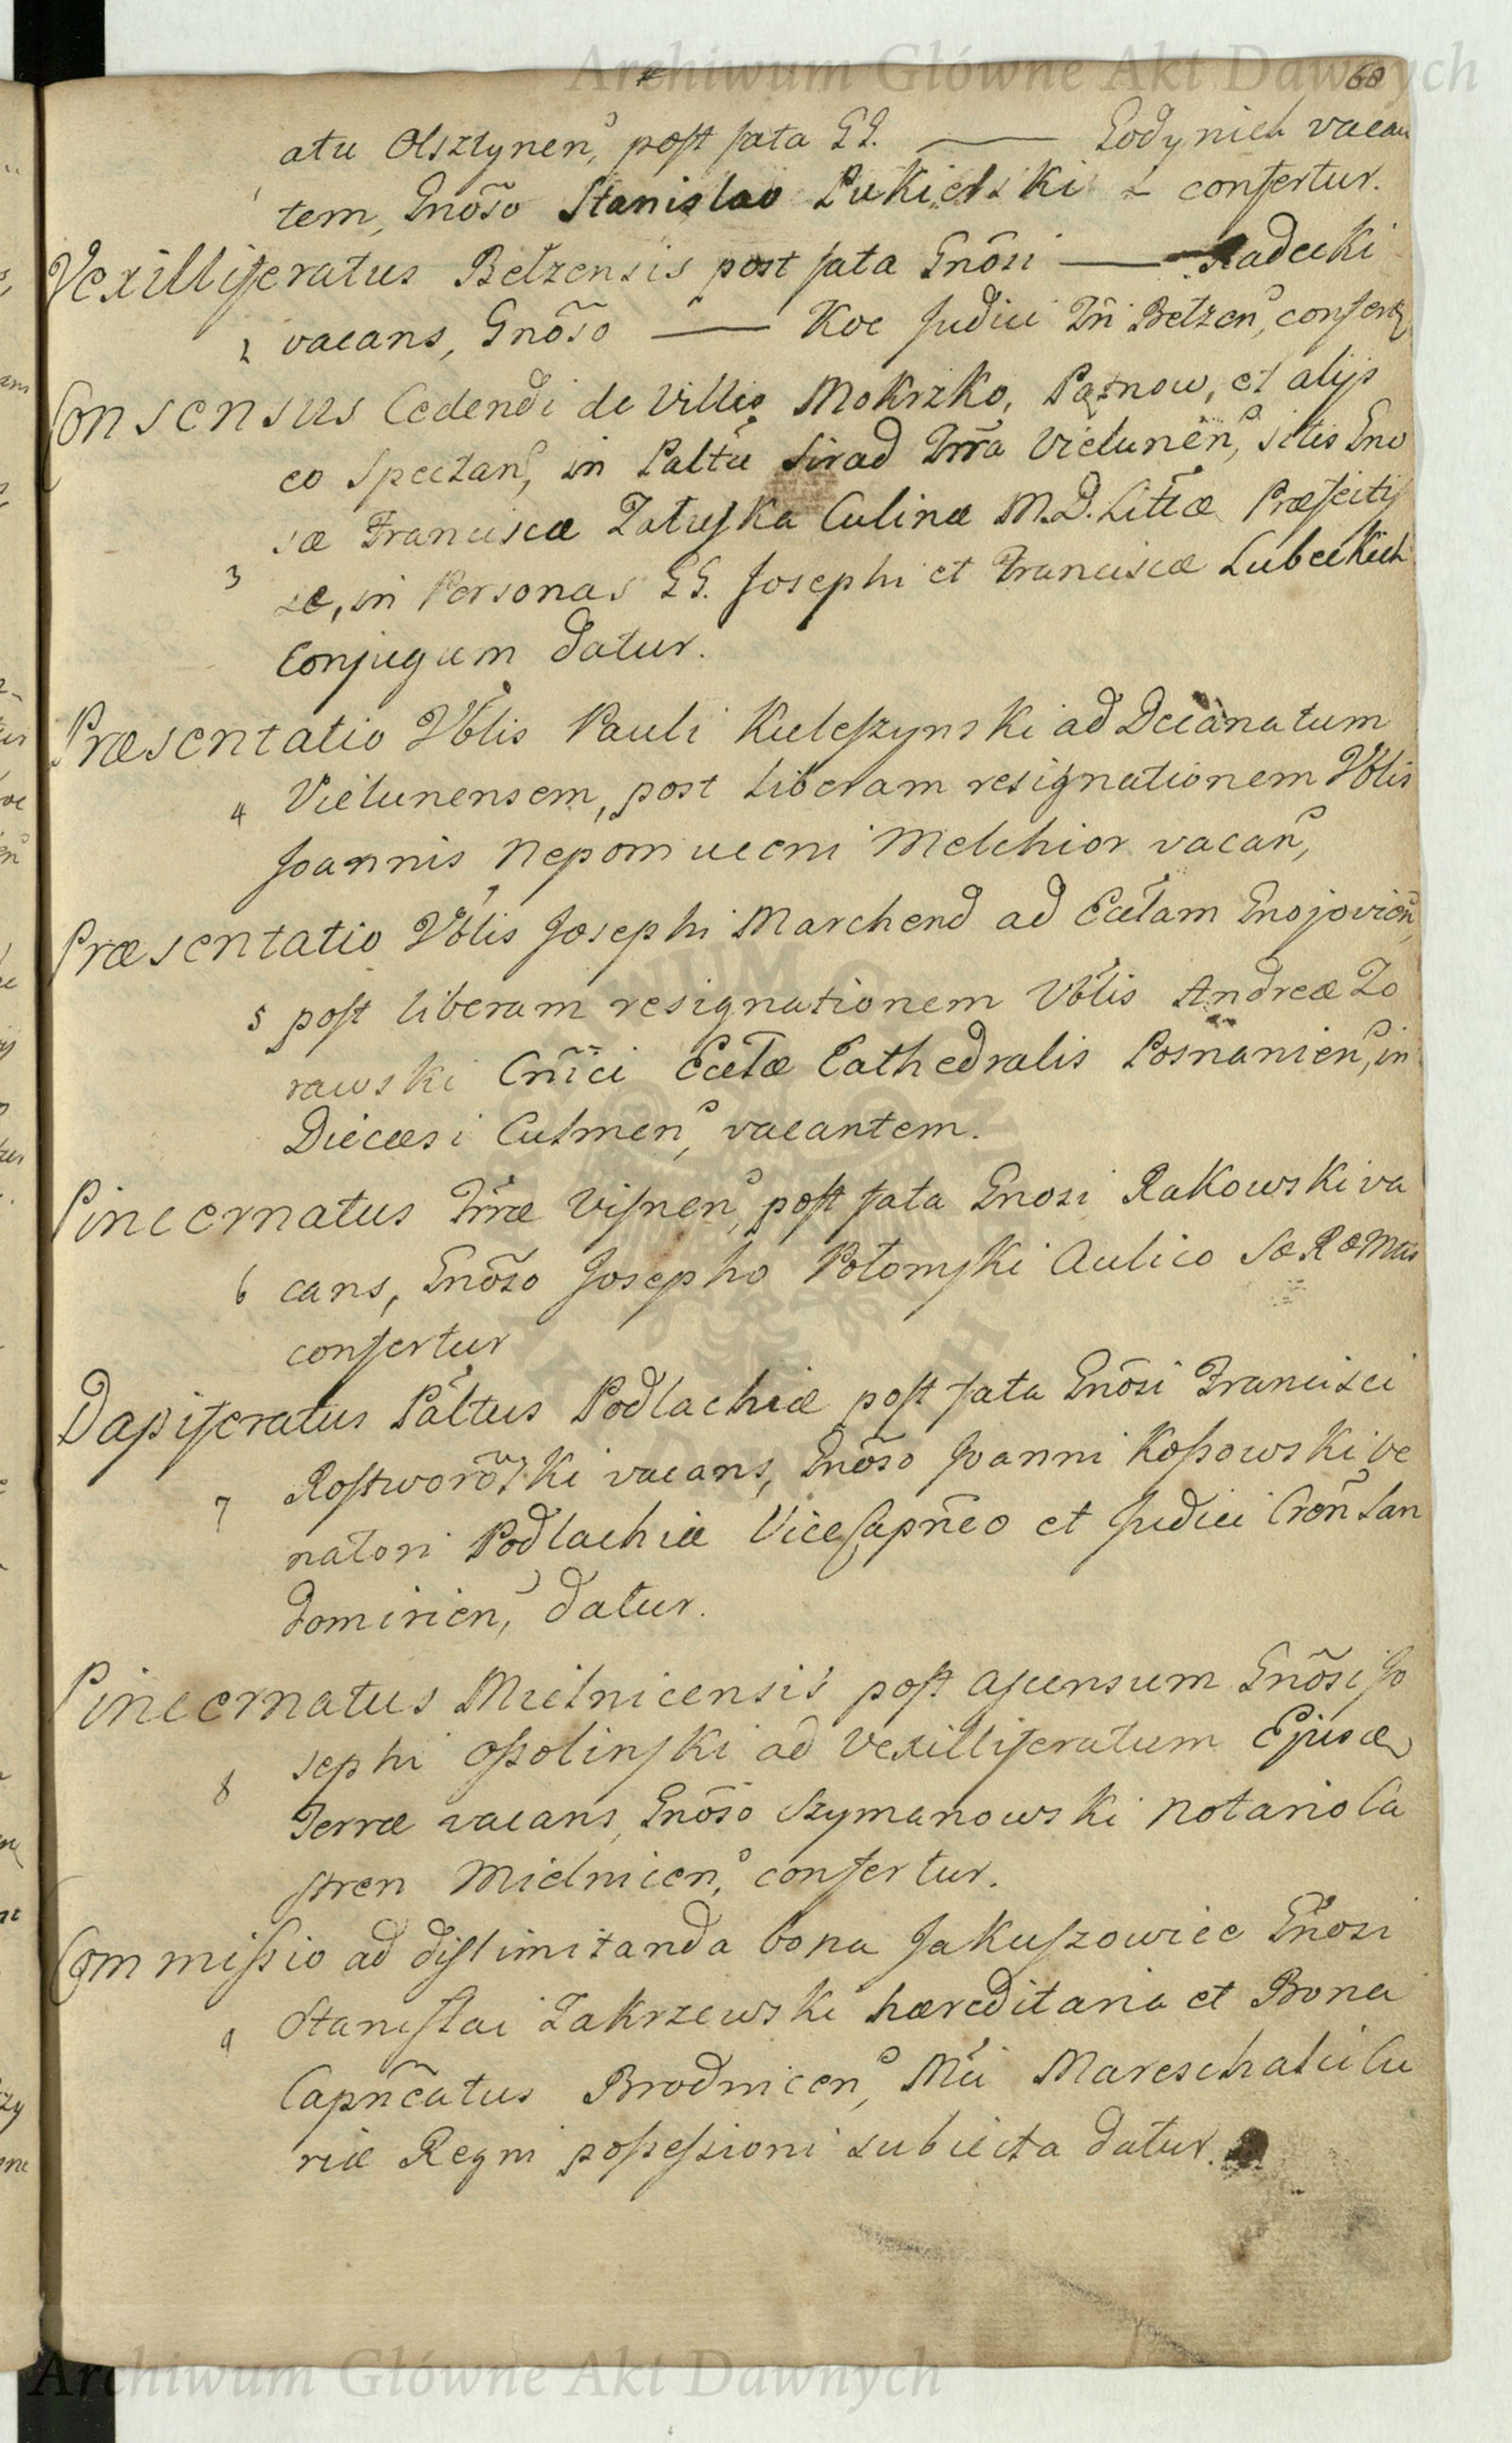 Archiwum Główne Akt Dawnych
68
atu Olsztynen, post fata GG. —— Godynich vacan
1 tem, Gnõso Stanislao Lukielski - confertur.
Vexilliferatus Belzensis post fata Gnõsi —— Radecki
2 vacans, Gnõso —— Koc Judici Tri Belzen, confertur
Consensus Cedendi de Villis Mokrzko, Pątnow, et alijs
eo spectan, in Paltu Sirad Trra Vielunen, sitis Gno
sæ Franciscæ Zaluska Culinæ M.D. Littæ Præfectis
3 sæ, in Personas GG. Josephi et Franciscæ Lubeckich
Conjugum datur.
Præsentatio Vblis Pauli Kuleszynski ad Decanatum
4 Vielunensem, post Liberam resignationem Vblis
Joannis Nepomuceni Melchior vacan,
Præsentatio Vblis Josephi Marchend ad Ecclam Gnojovien,
5 post liberam resignationem Vblis Andreæ Zo
rawski Cnĩci Ecclæ Cathedralis Posnanien, in
Diecæsi Culmen, vacantem.
Pincernatus Trræ Visnen, post fata Gnosi Rakowski va
6 cans, Gnõso Josepho Potomski Aulico SæRæMttis
confertur
Dapiferatus Paltus Podlachiæ post fata Gnõsi Francisci
7 Rostworowski vacans, Gnõso Joanni Kossowski Ve
natori Podlachiæ ViceCapneo et Judici Cren San
domirien, datur.
Pincernatus Mielnicensis post ascensum Gnõsi Jo
sephi Ossolinski ad Vexilliferatum Ejusdem
8 Terræ vacans, Gnõso Szymanowski Notario Ca
stren Mielnicen, confertur.
Commissio ad dislimitanda bona Jakuszowice Gnosi
9 Stanislai Zakrzewski hæreditaria et Bona
Capneatus Brodnicen, Mci Mareschalci Cu
riæ Regni possessioni subiecta datur.
Archiwum Główne Akt Dawnych